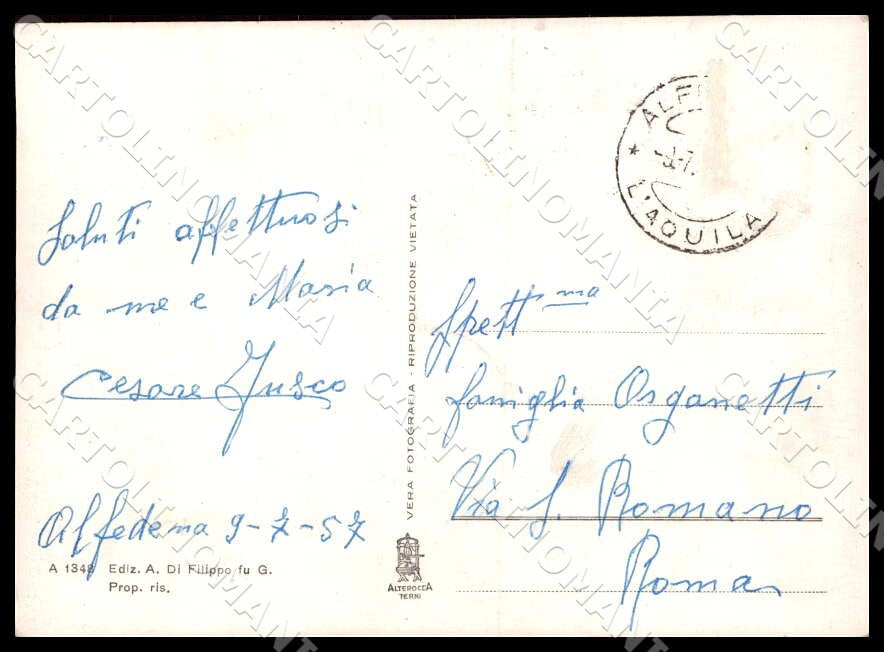 Saluti affettuosi
da me e Maria
Cesare Fusco
Alfedena 9-7-57
A 1348 Ediz. A. Di Filippo fu G.
Prop. ris.
VERA FOTOGRAFIA - RIPRODUZIONE VIETATA
ALTEROCCA
TERNI
L'AQUILA
Spett ma
famiglia Organetti
Via S. Romano
Roma
CARTOLINOMANIA